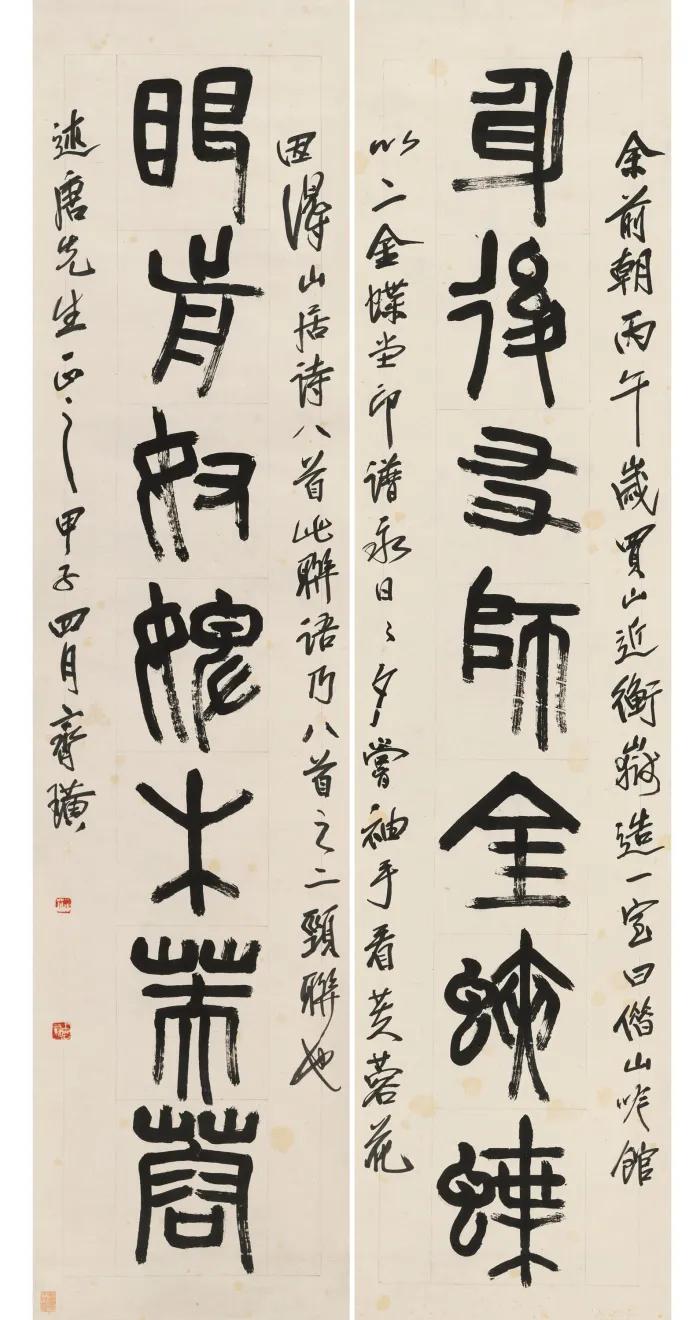 身後友師金蛺蝶
眼前奴婢木芙蓉
余前朝丙午歲買山近衡嶽造一室曰借山吟館
以二金蝶堂印譜永日々夕嘗袖手看芙蓉花
因得山居詩八首此聯語乃八首之二頸聯也
述唐先生正之甲子四月齊璜